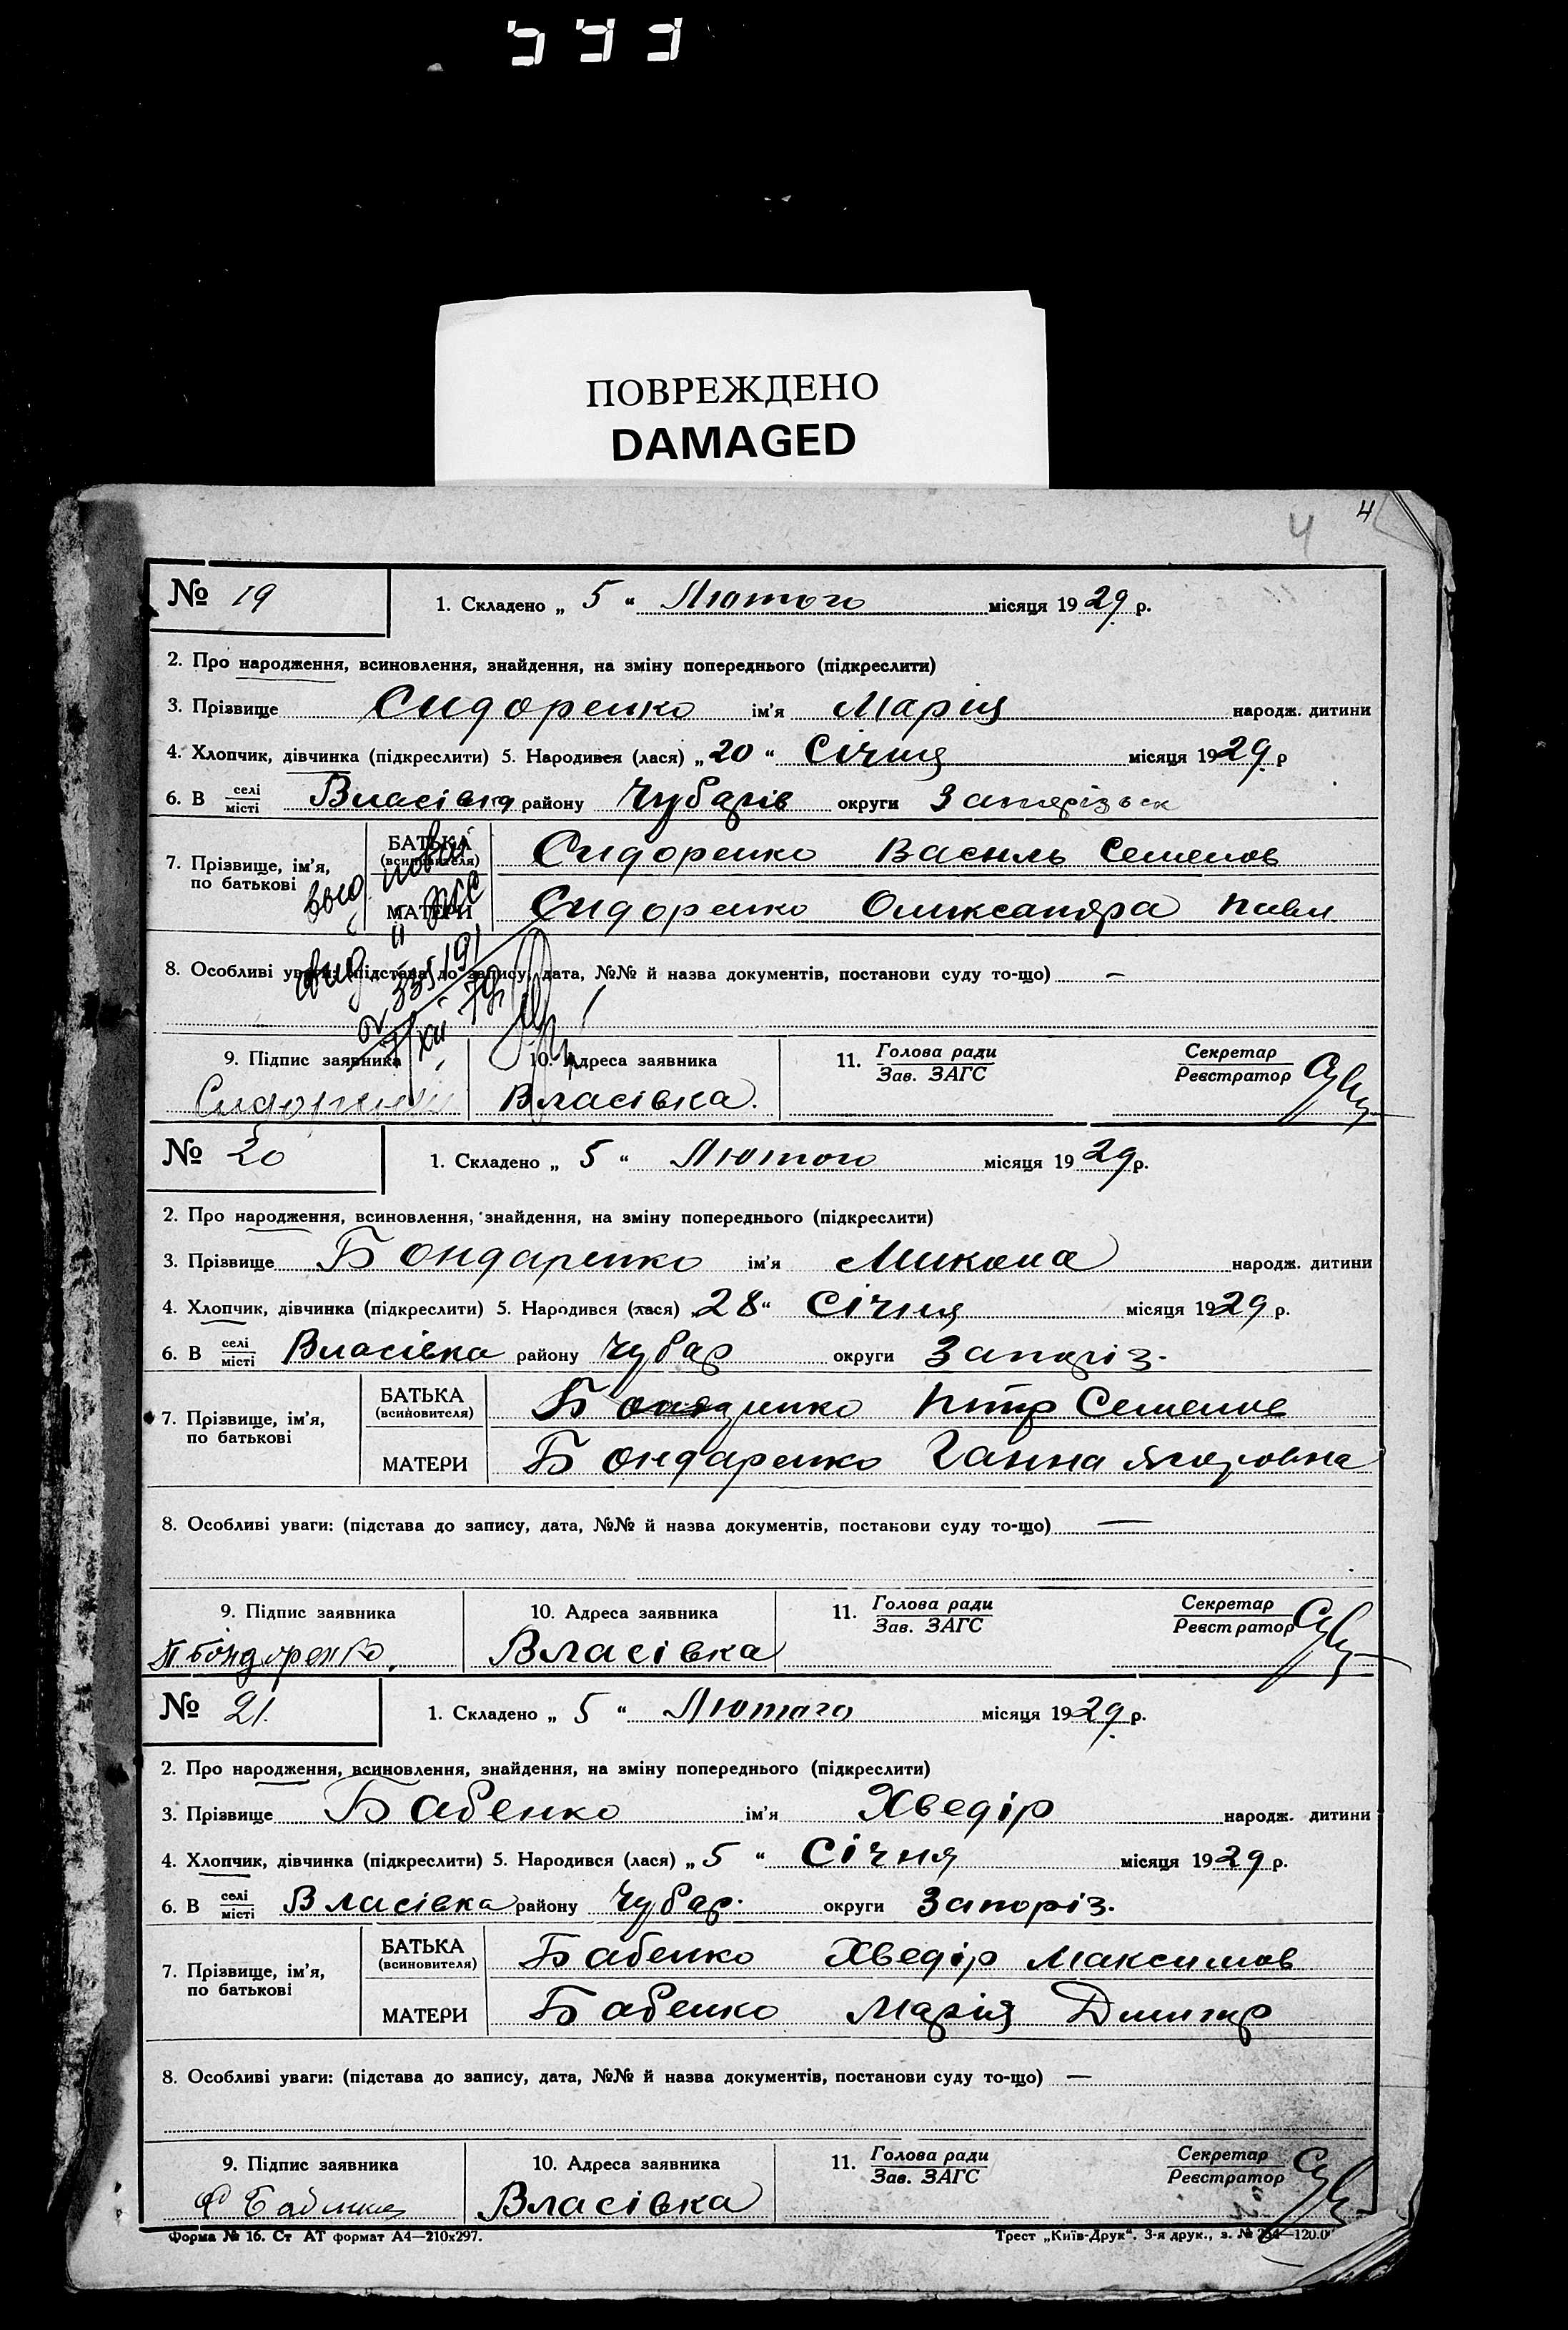 ПОВРЕЖДЕНО
DAMAGED
4 4
№ 19 1. Складено „ 5 “ Лютого місяця 1929 р.
2. Про народження, всиновлення, знайдення, на зміну попереднього (підкреслити)
3. Прізвище Сидоренко ім'я Марія народж. дитини
4. Хлопчик, дівчинка (підкреслити) 5. Народився (лася) „ 20 “ Січня місяця 1929 р
6. В селі/місті Власівка району Чубарів округи Запорізьк
7. Прізвище, ім'я, по батькові БАТЬКА (всиновителя) Сидоренко Василь Семенов
МАТЕРИ Сидоренко Олександра Павл
8. Особливі уваги: (підстава до запису, дата, №№ й назва документів, постанови суду то-що) —
9. Підпис заявника 10. Адреса заявника 11. Голова ради/Зав. ЗАГС Секретар/Реєстратор
Сидоренко Власівка.
№ 20 1. Складено „ 5 “ Лютого місяця 1929 р.
2. Про народження, всиновлення, знайдення, на зміну попереднього (підкреслити)
3. Прізвище Бондаренко ім'я Микола народж. дитини
4. Хлопчик, дівчинка (підкреслити) 5. Народився (лася) 28 “ Січня місяця 1929 р.
6. В селі/місті Власівка району Чубар округи Запоріз.
7. Прізвище, ім'я, по батькові БАТЬКА (всиновителя) Петр Семенов
МАТЕРИ Бондаренко Ганна
8. Особливі уваги: (підстава до запису, дата, №№ й назва документів, постанови суду то-що) —
9. Підпис заявника 10. Адреса заявника 11. Голова ради/Зав. ЗАГС Секретар/Реєстратор
П Бондоренко. Власівка
№ 21. 1. Складено „ 5 “ Лютаго місяця 1929 р.
2. Про народження, всиновлення, знайдення, на зміну попереднього (підкреслити)
3. Прізвище Бабенко ім'я Хведір народж. дитини
4. Хлопчик, дівчинка (підкреслити) 5. Народився (лася) „ 5 “ Січня місяця 1929 р.
6. В селі/місті Власівка району Чубар. округи Запоріз.
7. Прізвище, ім'я, по батькові БАТЬКА (всиновителя) Бабенко Хведір Максимов
МАТЕРИ Бабенко Марія Дмитр
8. Особливі уваги: (підстава до запису, дата, №№ й назва документів, постанови суду то-що) —
9. Підпис заявника 10. Адреса заявника 11. Голова ради/Зав. ЗАГС Секретар/Реєстратор
Власівка
Форма № 16. Ст АТ формат А4—210х297. Трест „Київ-Друк“. 3-я друк., з. №